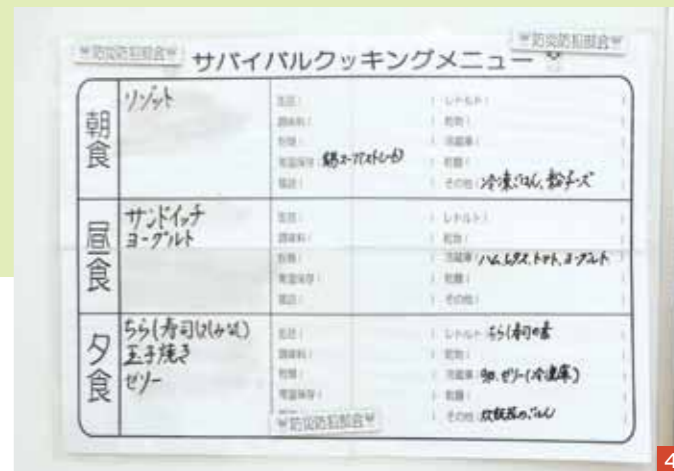 防災防犯部会
防災防犯部会
サバイバルクッキングメニュー
朝食
リゾット
缶詰(
調味料(
粉類(
常温保存(鍋スープ(ストレート)
瓶詰(
(レトルト(
(乾物(
(冷蔵庫(
(乾麺(
(その他(冷凍ごはん、粉チーズ
昼食
サンドイッチ
ヨーグルト
缶詰(
調味料(
粉類(
常温保存(
瓶詰(
(レトルト(
(乾物(
(冷蔵庫(ハム、レタス、トマト、ヨーグルト
(乾麺(
(その他(
夕食
ちらし寿司(
玉子焼き
ゼリー
缶詰(
調味料(
粉類(
常温保存(
(レトルト(ちらし寿司の素
(乾物(
(冷蔵庫(卵、ゼリー(冷蔵庫)
(乾麺(
(その他(炊飯器のごはん
防災防犯部会
4